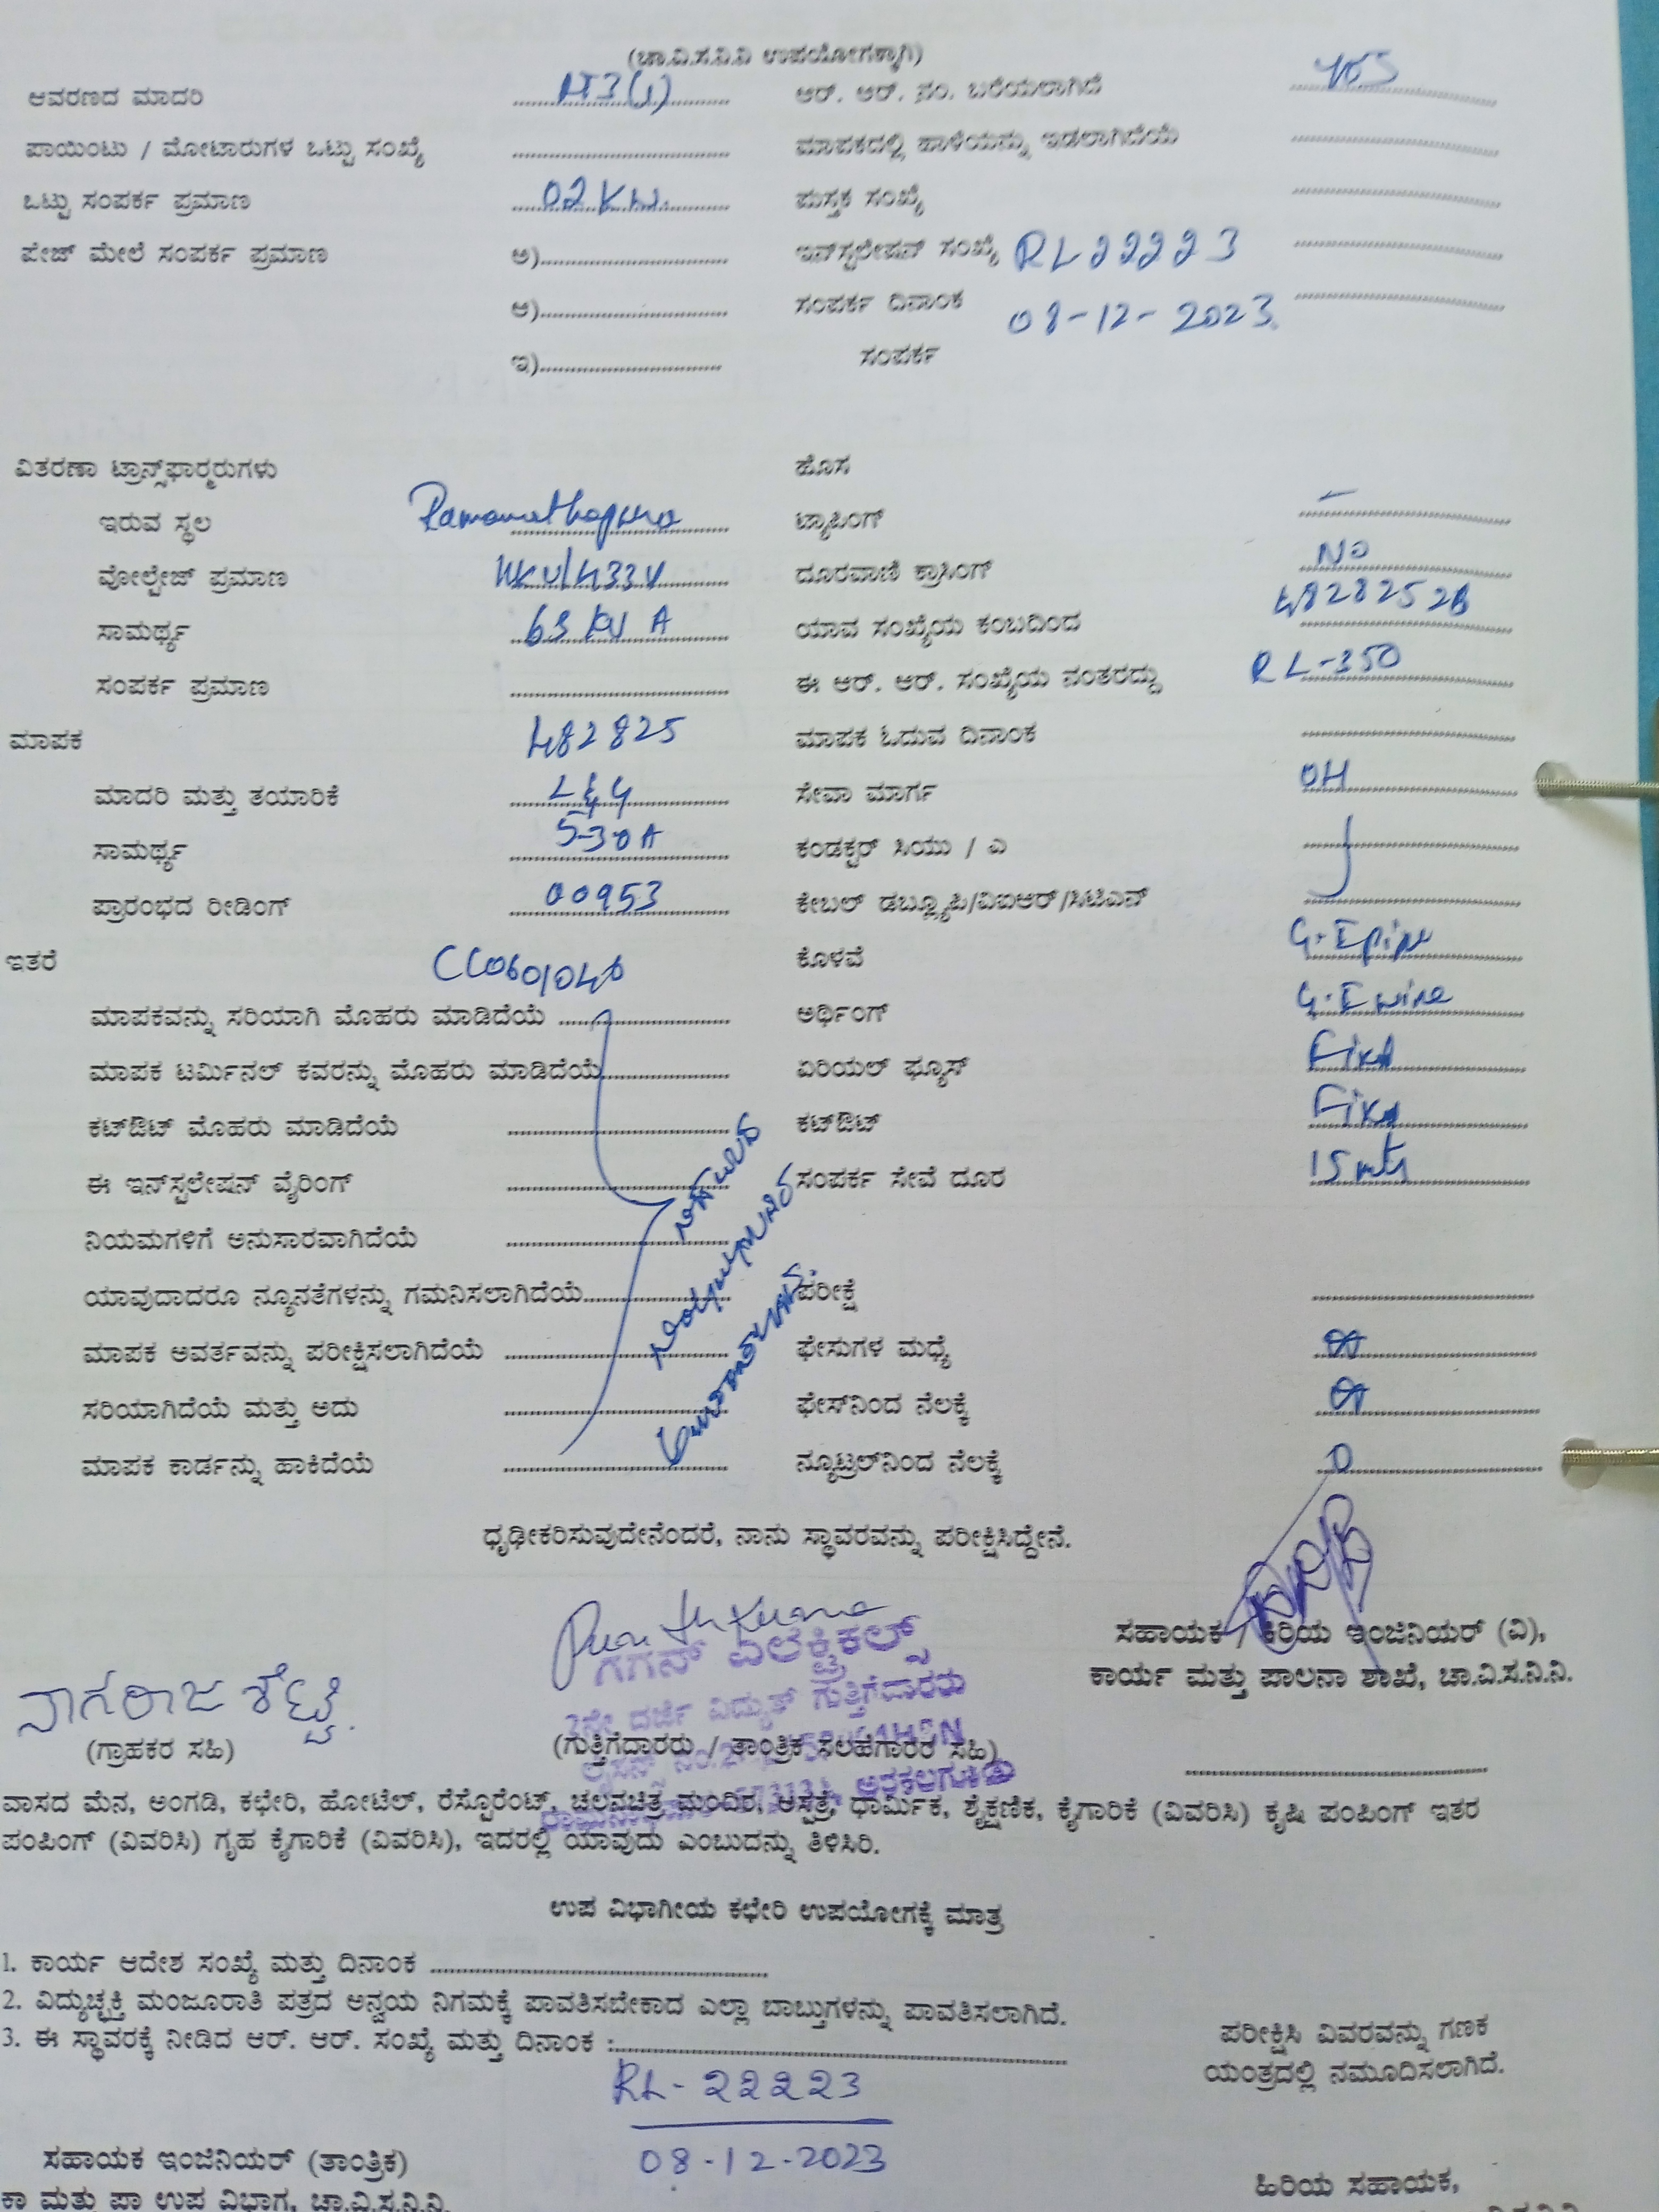 (ಚಾ.ವಿ.ಸ.ನಿ.ನಿ ಉಪಯೋಗಕ್ಕಾಗಿ)
ಆವರಣದ ಮಾದರಿ ಆರ್. ಆರ್. ನಂ. ಬರೆಯಲಾಗಿದೆ yes
ಪಾಯಿಂಟು / ಮೋಟಾರುಗಳ ಒಟ್ಟು ಸಂಖ್ಯೆ ಮಾಪಕದಲ್ಲಿ ಹಾಳೆಯನ್ನು ಇಡಲಾಗಿದೆಯೆ
ಒಟ್ಟು ಸಂಪರ್ಕ ಪ್ರಮಾಣ 02 KW. ಪುಸ್ತಕ ಸಂಖ್ಯೆ
ಪೇಜ್ ಮೇಲೆ ಸಂಪರ್ಕ ಪ್ರಮಾಣ ಅ) ಇನ್‌ಸ್ಟಲೇಷನ್ ಸಂಖ್ಯೆ RL22223
ಆ) ಸಂಪರ್ಕ ದಿನಾಂಕ 08-12-2023.
ಇ) ಸಂಪರ್ಕ
ವಿತರಣಾ ಟ್ರಾನ್ಸ್‌ಫಾರ್ಮರುಗಳು ಹೊಸ
ಇರುವ ಸ್ಥಲ Ramanathapura ಟ್ಯಾಪಿಂಗ್ –
ವೋಲ್ಟೇಜ್ ಪ್ರಮಾಣ 11KV/433V ದೂರವಾಣಿ ಕ್ರಾಸಿಂಗ್ NO
ಸಾಮರ್ಥ್ಯ 63 KV A ಯಾವ ಸಂಖ್ಯೆಯ ಕಂಬದಿಂದ
ಸಂಪರ್ಕ ಪ್ರಮಾಣ ಈ ಆರ್. ಆರ್. ಸಂಖ್ಯೆಯ ನಂತರದ್ದು RL-350
ಮಾಪಕ 482825 ಮಾಪಕ ಓದುವ ದಿನಾಂಕ
ಮಾದರಿ ಮತ್ತು ತಯಾರಿಕೆ L&G ಸೇವಾ ಮಾರ್ಗ OH
ಸಾಮರ್ಥ್ಯ 5-30A ಕಂಡಕ್ಟರ್ ಸಿಯು / ಎ
ಪ್ರಾರಂಭದ ರೀಡಿಂಗ್ 00953 ಕೇಬಲ್ ಡಬ್ಲ್ಯೂಪಿ/ವಿಐಆರ್/ಸಿಟಿಎನ್
ಇತರೆ ಕೊಳವೆ G.I pipe
ಮಾಪಕವನ್ನು ಸರಿಯಾಗಿ ಮೊಹರು ಮಾಡಿದೆಯೆ ಅರ್ಥಿಂಗ್ G.I wire
ಮಾಪಕ ಟರ್ಮಿನಲ್ ಕವರನ್ನು ಮೊಹರು ಮಾಡಿದೆಯೆ ಏರಿಯಲ್ ಫ್ಯೂಸ್ Fixd
ಕಟ್‌ಔಟ್ ಮೊಹರು ಮಾಡಿದೆಯೆ ಕಟ್‌ಔಟ್ Fixd
ಈ ಇನ್‌ಸ್ಟಲೇಷನ್ ವೈರಿಂಗ್ ಸಂಪರ್ಕ ಸೇವೆ ದೂರ 15 mtr
ನಿಯಮಗಳಿಗೆ ಅನುಸಾರವಾಗಿದೆಯೆ
ಯಾವುದಾದರೂ ನ್ಯೂನತೆಗಳನ್ನು ಗಮನಿಸಲಾಗಿದೆಯೆ ಪರೀಕ್ಷೆ
ಮಾಪಕ ಅವರ್ತವನ್ನು ಪರೀಕ್ಷಿಸಲಾಗಿದೆಯೆ ಫೇಸುಗಳ ಮಧ್ಯೆ
ಸರಿಯಾಗಿದೆಯೆ ಮತ್ತು ಅದು ಫೇಸ್‌ನಿಂದ ನೆಲಕ್ಕೆ
ಮಾಪಕ ಕಾರ್ಡನ್ನು ಹಾಕಿದೆಯೆ ನ್ಯೂಟ್ರಲ್‌ನಿಂದ ನೆಲಕ್ಕೆ 0
ಧೃಢೀಕರಿಸುವುದೇನೆಂದರೆ, ನಾನು ಸ್ಥಾವರವನ್ನು ಪರೀಕ್ಷಿಸಿದ್ದೇನೆ.
ಗಗನ್ ಎಲೆಕ್ಟ್ರಿಕಲ್ಸ್
ಸಹಾಯಕ / ಕಿರಿಯ ಇಂಜಿನಿಯರ್ (ವಿ),
ಕಾರ್ಯ ಮತ್ತು ಪಾಲನಾ ಶಾಖೆ, ಚಾ.ವಿ.ಸ.ನಿ.ನಿ.
ನಾಗರಾಜ ಶೆಟ್ಟಿ.
ದರ್ಜೆ ವಿದ್ಯುತ್ ಗುತ್ತಿಗೆದಾರರು
(ಗ್ರಾಹಕರ ಸಹಿ) (ಗುತ್ತಿಗೆದಾರರು / ತಾಂತ್ರಿಕ ಸಲಹೆಗಾರರ ಸಹಿ)
ಅರಕಲಗೂಡು
ವಾಸದ ಮೆನ, ಅಂಗಡಿ, ಕಛೇರಿ, ಹೋಟೆಲ್, ರೆಸ್ಟೊರೆಂಟ್, ಚಲನಚಿತ್ರ ಮಂದಿರ, ಆಸ್ಪತ್ರೆ, ಧಾರ್ಮಿಕ, ಶೈಕ್ಷಣಿಕ, ಕೈಗಾರಿಕೆ (ವಿವರಿಸಿ) ಕೃಷಿ ಪಂಪಿಂಗ್ ಇತರ
ಪಂಪಿಂಗ್ (ವಿವರಿಸಿ) ಗೃಹ ಕೈಗಾರಿಕೆ (ವಿವರಿಸಿ), ಇದರಲ್ಲಿ ಯಾವುದು ಎಂಬುದನ್ನು ತಿಳಿಸಿರಿ.
ಉಪ ವಿಭಾಗೀಯ ಕಛೇರಿ ಉಪಯೋಗಕ್ಕೆ ಮಾತ್ರ
1. ಕಾರ್ಯ ಆದೇಶ ಸಂಖ್ಯೆ ಮತ್ತು ದಿನಾಂಕ
2. ವಿದ್ಯುಚ್ಛಕ್ತಿ ಮಂಜೂರಾತಿ ಪತ್ರದ ಅನ್ವಯ ನಿಗಮಕ್ಕೆ ಪಾವತಿಸಬೇಕಾದ ಎಲ್ಲಾ ಬಾಬ್ತುಗಳನ್ನು ಪಾವತಿಸಲಾಗಿದೆ.
3. ಈ ಸ್ಥಾವರಕ್ಕೆ ನೀಡಿದ ಆರ್. ಆರ್. ಸಂಖ್ಯೆ ಮತ್ತು ದಿನಾಂಕ :
ಪರೀಕ್ಷಿಸಿ ವಿವರವನ್ನು ಗಣಕ
ಯಂತ್ರದಲ್ಲಿ ನಮೂದಿಸಲಾಗಿದೆ.
RL-22223
08-12-2023
ಸಹಾಯಕ ಇಂಜಿನಿಯರ್ (ತಾಂತ್ರಿಕ)
ಹಿರಿಯ ಸಹಾಯಕ,
ಕಾ ಮತ್ತು ಪಾ ಉಪ ವಿಭಾಗ, ಚಾ.ವಿ.ಸ.ನಿ.ನಿ.